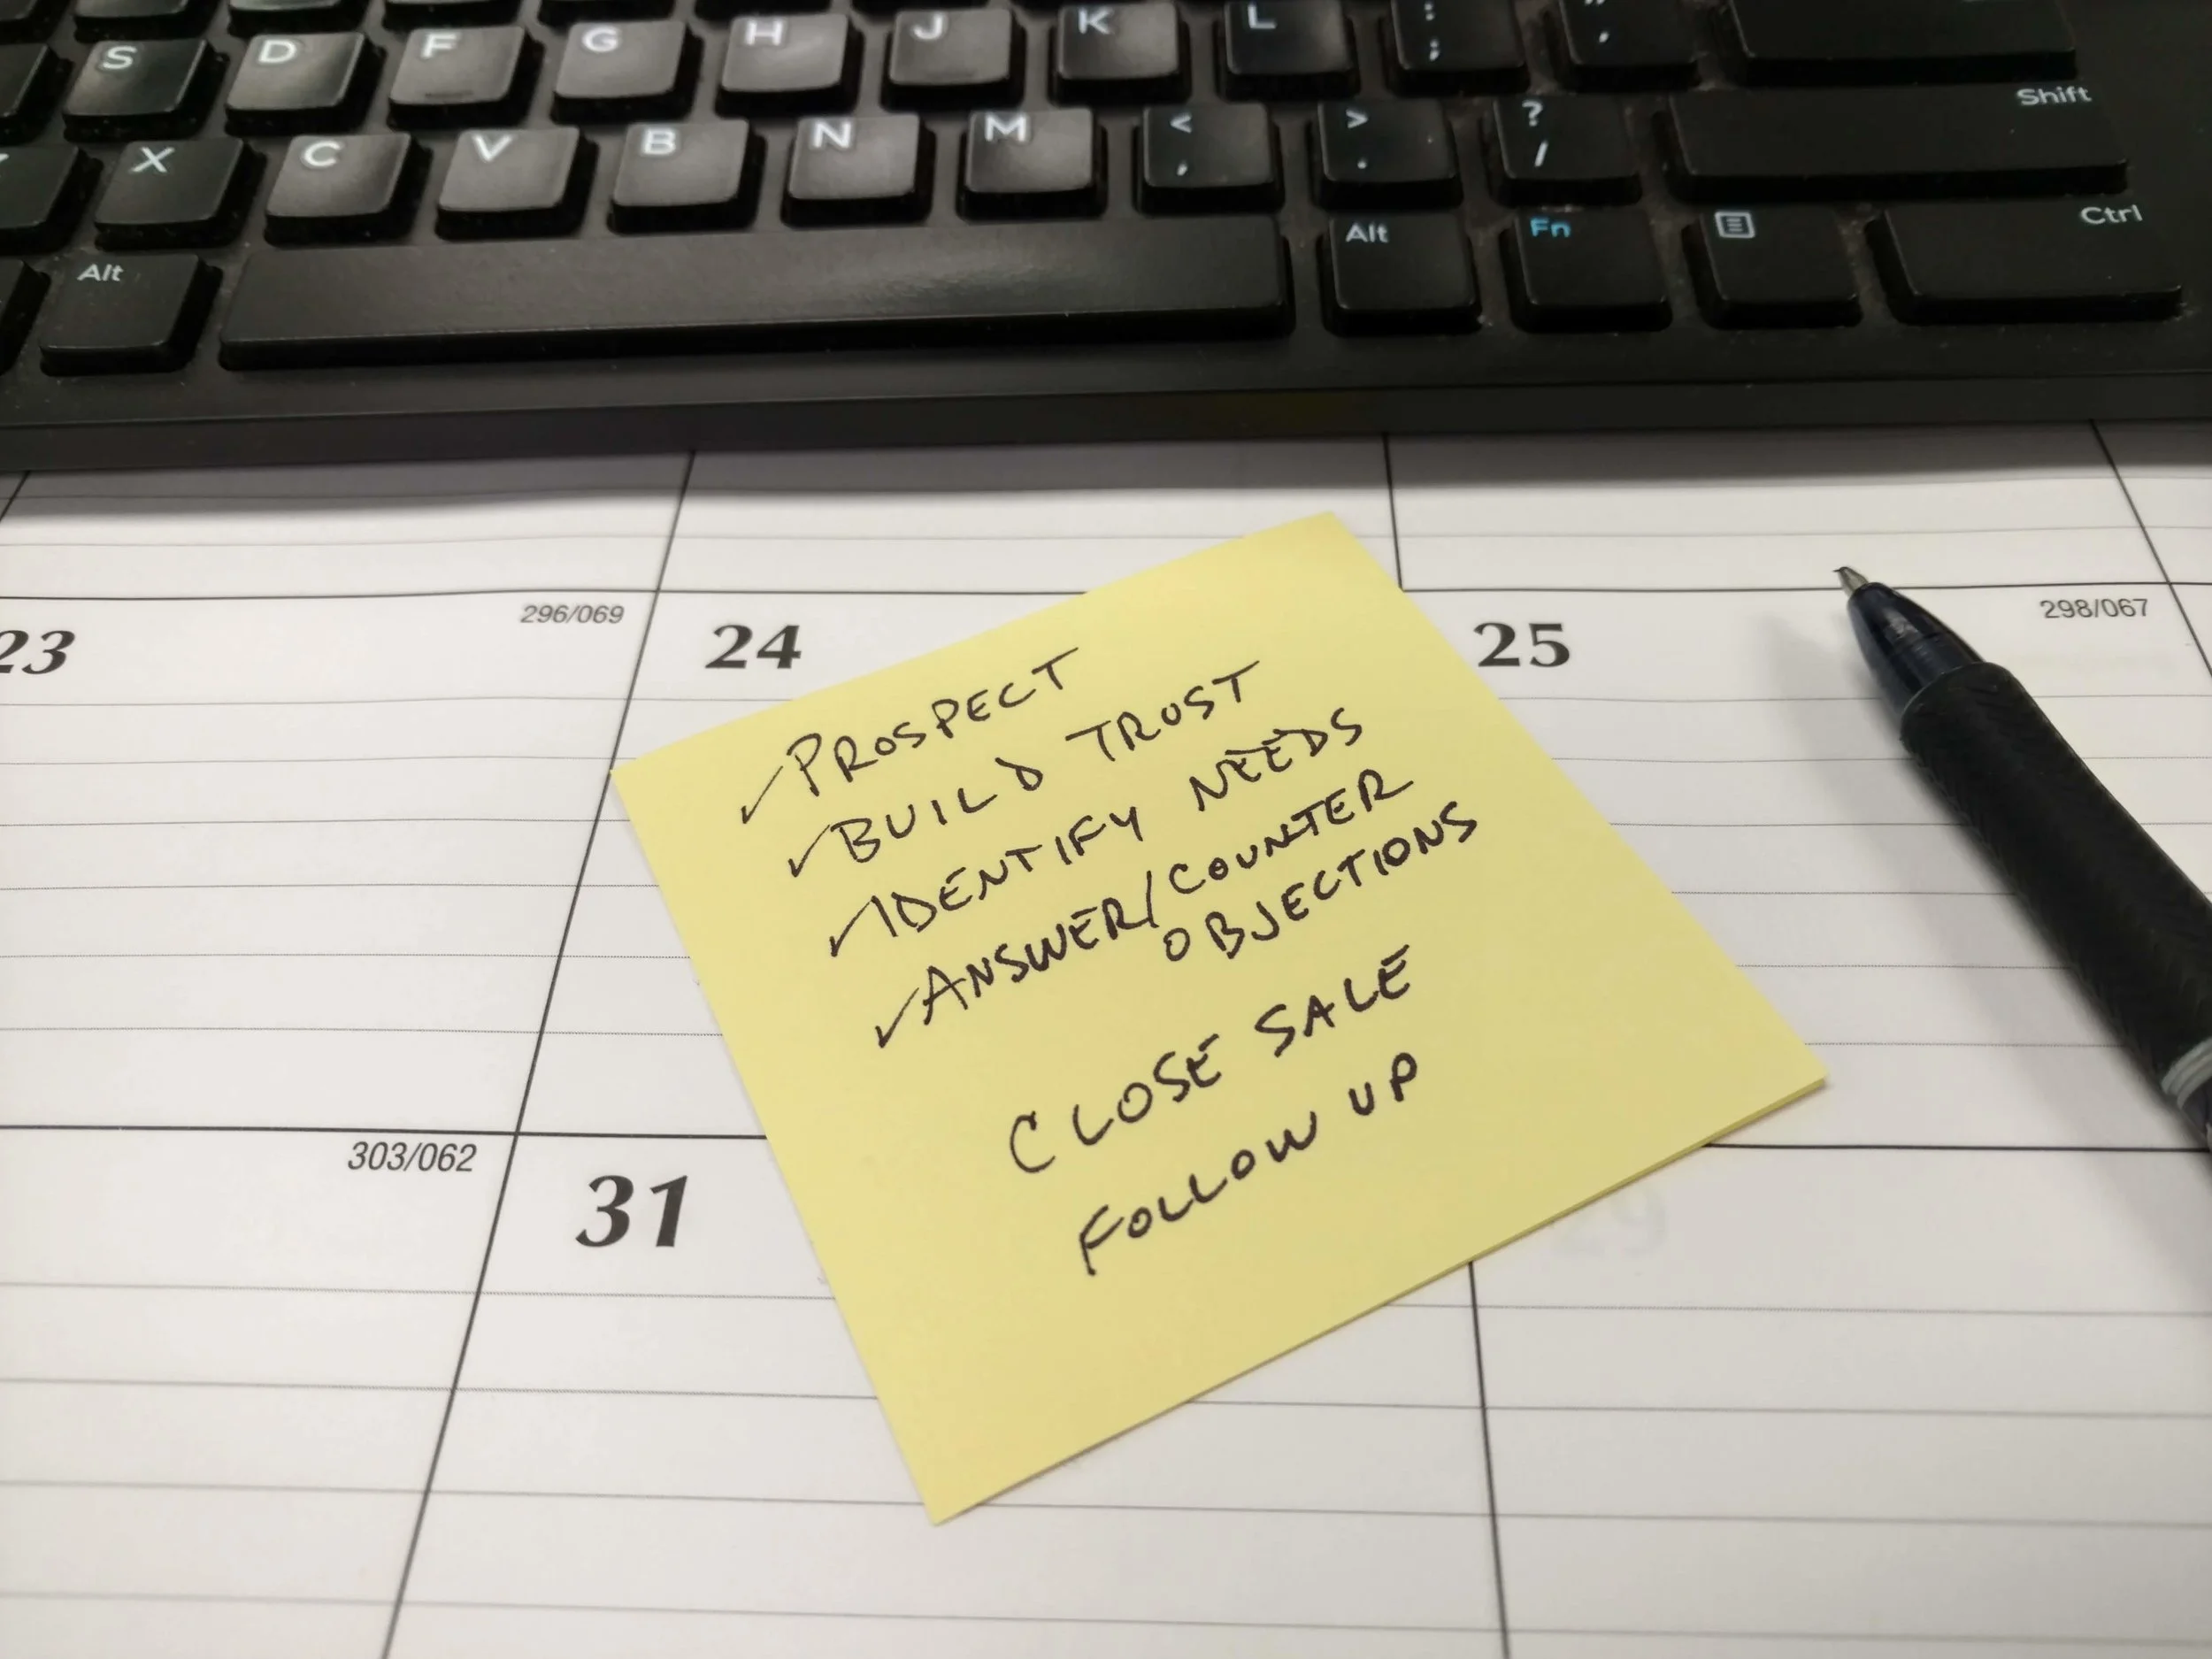 S D F G H J K L : ;
X C V B N M < , > . ? / Shift
Alt Alt Fn Ctrl
23 296/069 24 25 298/067
✓ PROSPECT
✓ BUILD TRUST
✓ IDENTIFY NEEDS
✓ ANSWER/COUNTER
OBJECTIONS
CLOSE SALE
FOLLOW UP
303/062 31 29